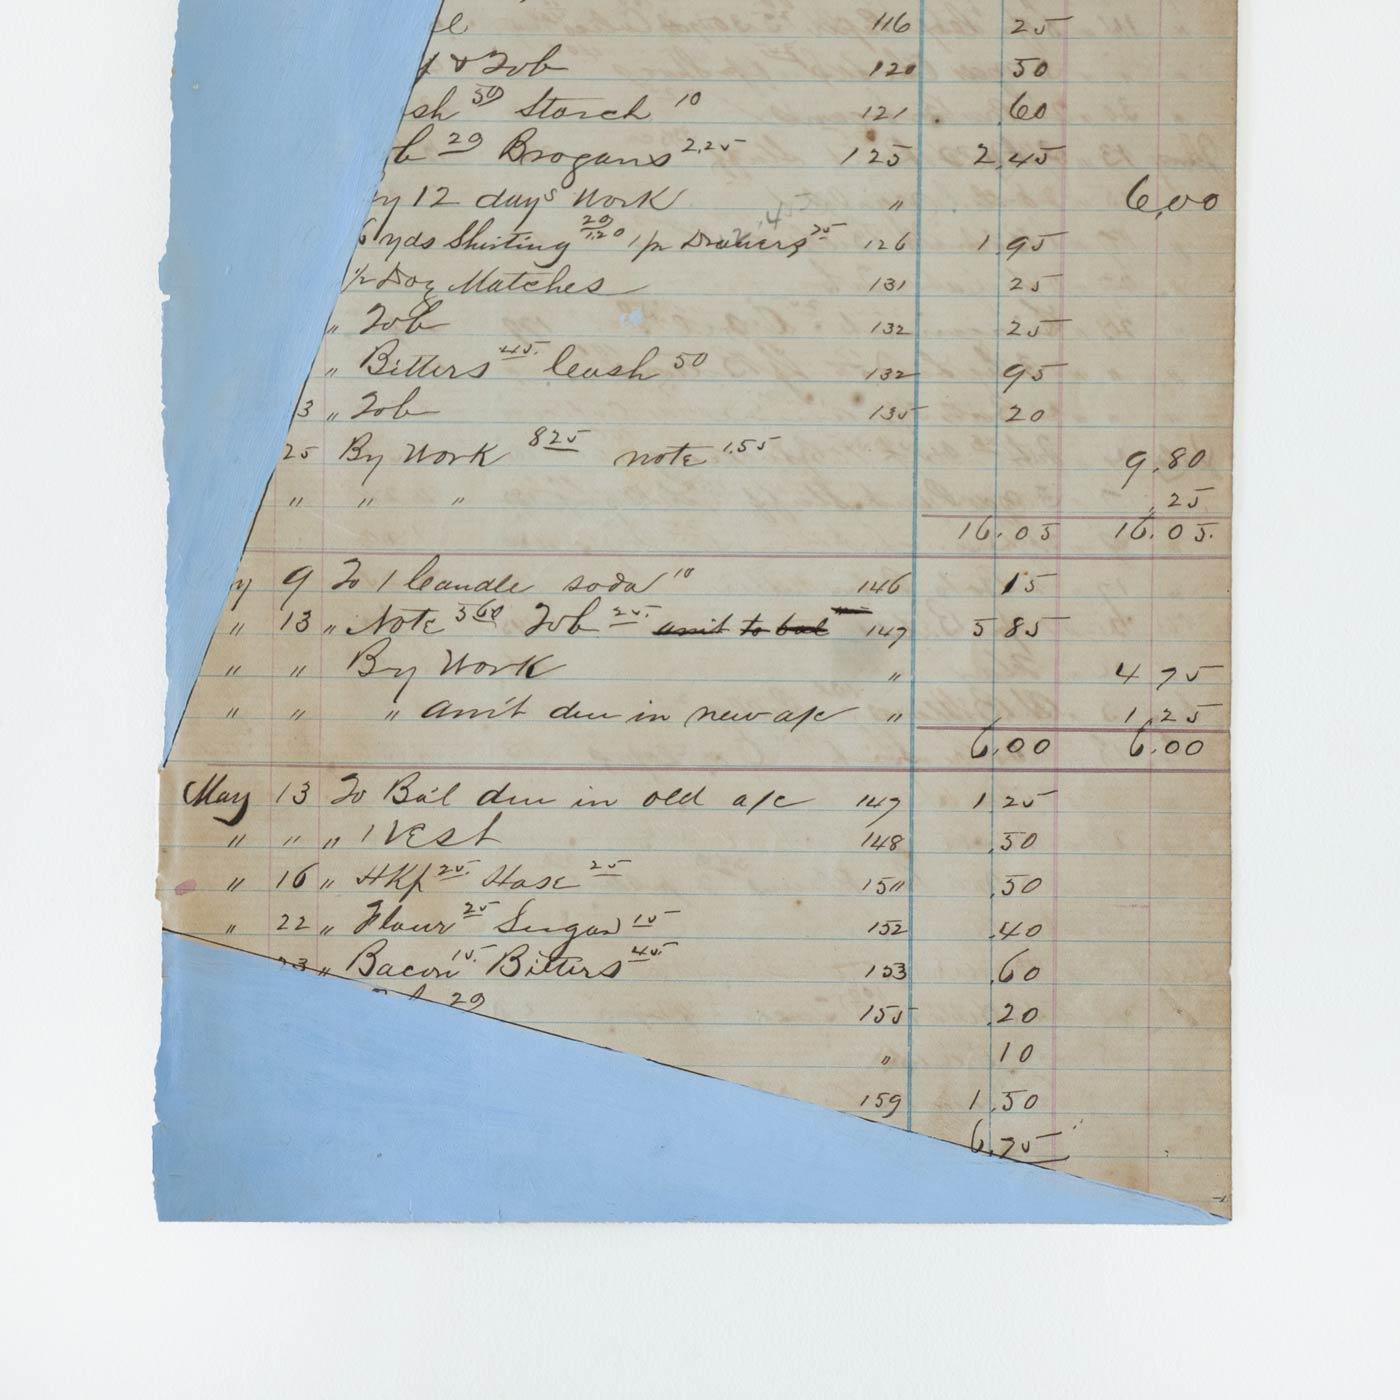 116 25
& Tob 120 50
sh 50 Starch 10 121 60
b 20 Brogans 2.25 125 2.45
y 12 days Work " 6.00
6 yds Shirting 20 1.20 1 pr Drawers 75 126 1.95
1/2 Doz Matches 131 25
" Tob 132 25
" Bitters 45 Cash 50 132 95
3 " Tob 135 20
25 By Work 8 25 note 1.55 9.80
" " " .25
16.05 16.05
y 9 To 1 Candle soda 10 146 15
" 13 " Note 5 60 Tob 25 amt to bal 147 5 85
" " By Work " 4 75
" " " am't due in new a/c " 1.25
6.00 6.00
May 13 To Bal due in old a/c 147 1 25
" " " 1 Vest 148 .50
" 16 " Hkf 25 Hose 25 150 .50
" 22 " Flour 25 Sugar 15 152 .40
23 " Bacon 15 Bitters 45 153 .60
20 155 .20
" 10
159 1.50
6.75